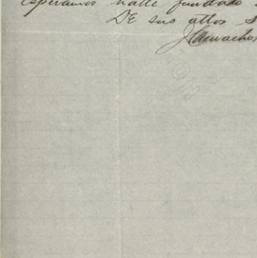 Esperamos halle fundado
DE sus attos S
J Camachos